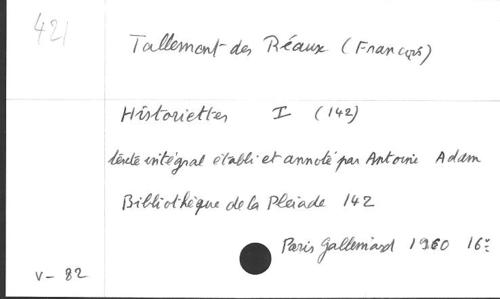 421
Tallemant des Réaux (François)
Historiettes I (142)
texte intégral établi et annoté par Antoine Adam
Bibliothèque de la Pleiade 142
Paris Gallimard 1960 16º
V - 82